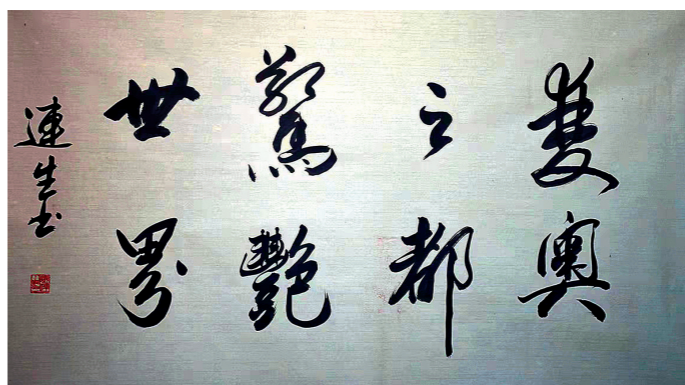 雙奥
之都
驚艷
世界
連生书